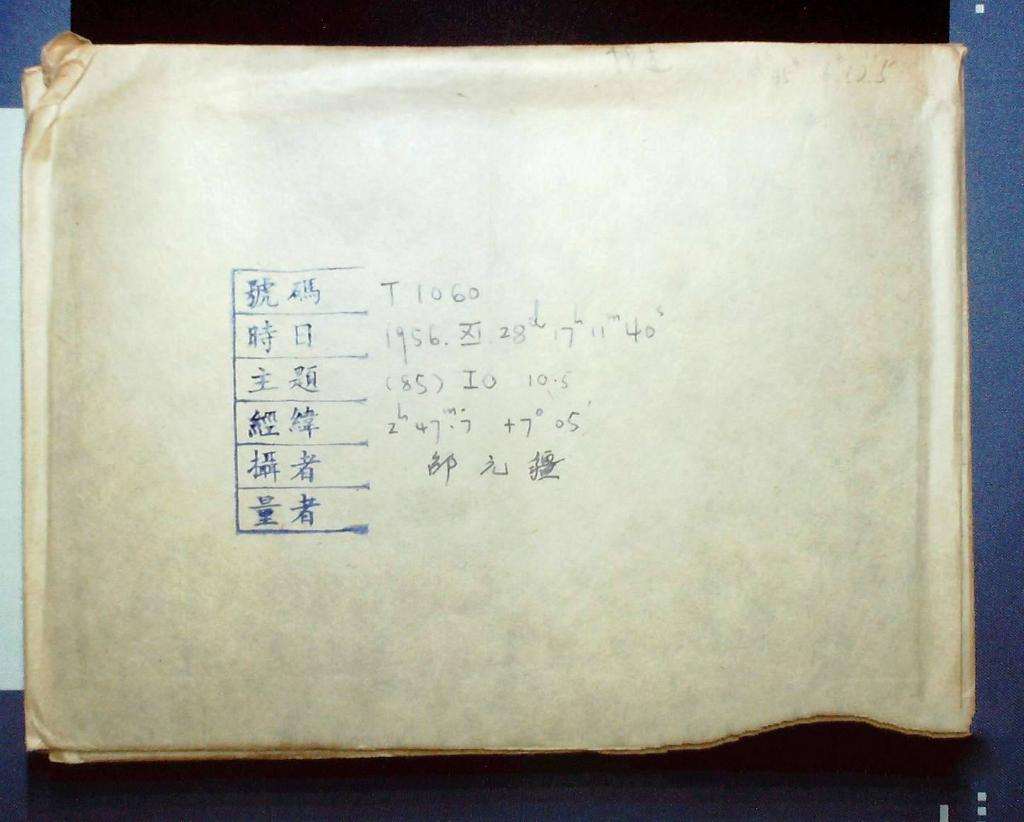 號碼 T 1060
時日 1956. XI. 28ᵈ 17ʰ 11ᵐ 40ˢ
主題 (85) IO 10.5
經緯 2ʰ 47ᵐ.7 +7° 05′
攝者 邵元疆
量者